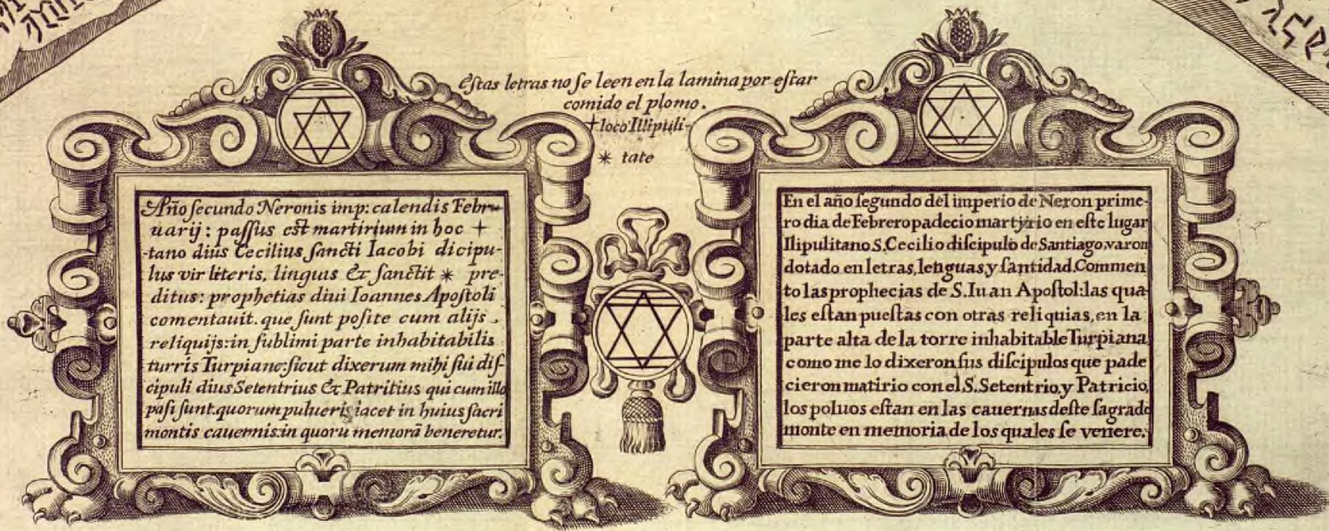 Estas letras no se leen en la lamina por estar
comido el plomo.
+ loco Illipuli-
* tate
Año secundo Neronis imp: calendis Febr
uarij: passus est martirium in hoc +
-tano dius Cecilius, sancti Iacobi dicipu-
lus vir literis, linguis & sanctit * pre-
ditus: prophetias diui Ioannes Apostoli
comentauit. que sunt posite cum alijs
reliquijs: in sublimi parte inhabitabilis
turris Turpiane: sicut dixerum mihi sui dis-
cipuli dius Setentrius & Patritius qui cum illo
pasi sunt. quorum pulueris iacet in huius sacri
montis cauernis: in quorū memorã beneretur.
En el año segundo del imperio de Neron prime-
ro dia de Febrero padecio martyrio en este lugar
Ilipulitano S. Cecilio discipulo de Santiago, varon
dotado en letras, lenguas, y santidad. Commen
to las prophecias de S. Iuan Apostol: las qua-
les estan puestas con otras reliquias, en la
parte alta de la torre inhabitable Turpiana,
como me lo dixeron sus discipulos que pade
cieron matirio con el S. Setentrio, y Patricio,
los poluos estan en las cauernas deste sagrado
monte en memoria de los quales se venere.